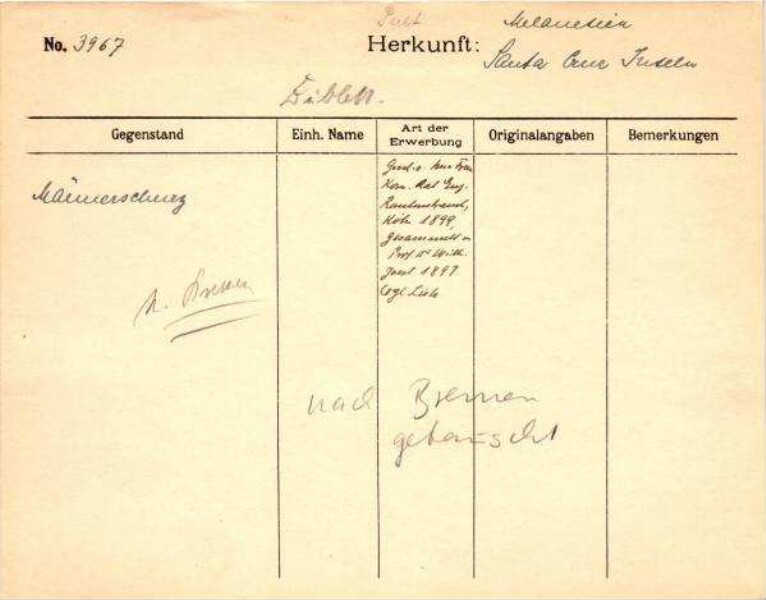 Pult
Melanesien
No. 3967
Herkunft:
Santa Cruz Inseln
Dublett.
Gegenstand Einh. Name Art der Erwerbung Originalangaben Bemerkungen
Männerschurz
Frau
Kom. Rat Eug.
Rautenstrauch,
Köln 1899,
Gesammelt v.
Prof. Dr Wilh.
Joest 1897
Vgl Liste
n. Bremen
nach Bremen
getauscht